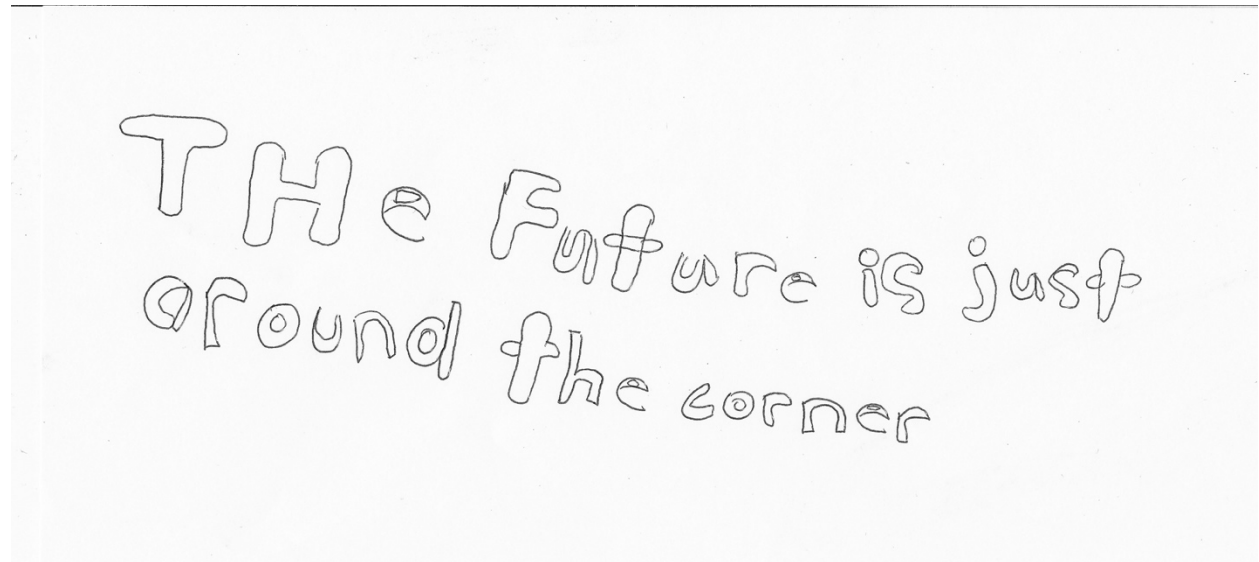 THe Future is just
around the corner